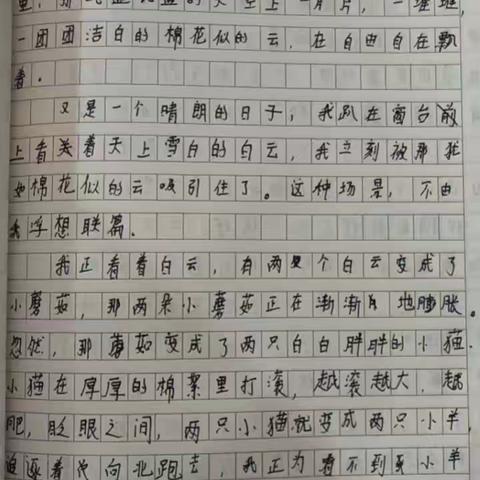 天空上一片片，一堆堆，
一团团洁白的棉花似的云，在自由自在飘
着．
又是一个晴朗的日子，我趴在窗台前
上看关着天上雪白的白云，我立刻被那犹
如棉花似的云吸引住了。这种场景，不由
我浮想联篇．
我正看着白云，有两个白云变成了
小蘑菇，那两朵小蘑菇正在渐渐地膨胀。
忽然，那蘑菇变成了两只白白胖胖的小猫．
小猫在厚厚的棉絮里打滚，越滚越大，越
肥，眨眼之间，两只小猫就变成两只小羊，
追逐着向北跑去，我正为看不到小羊